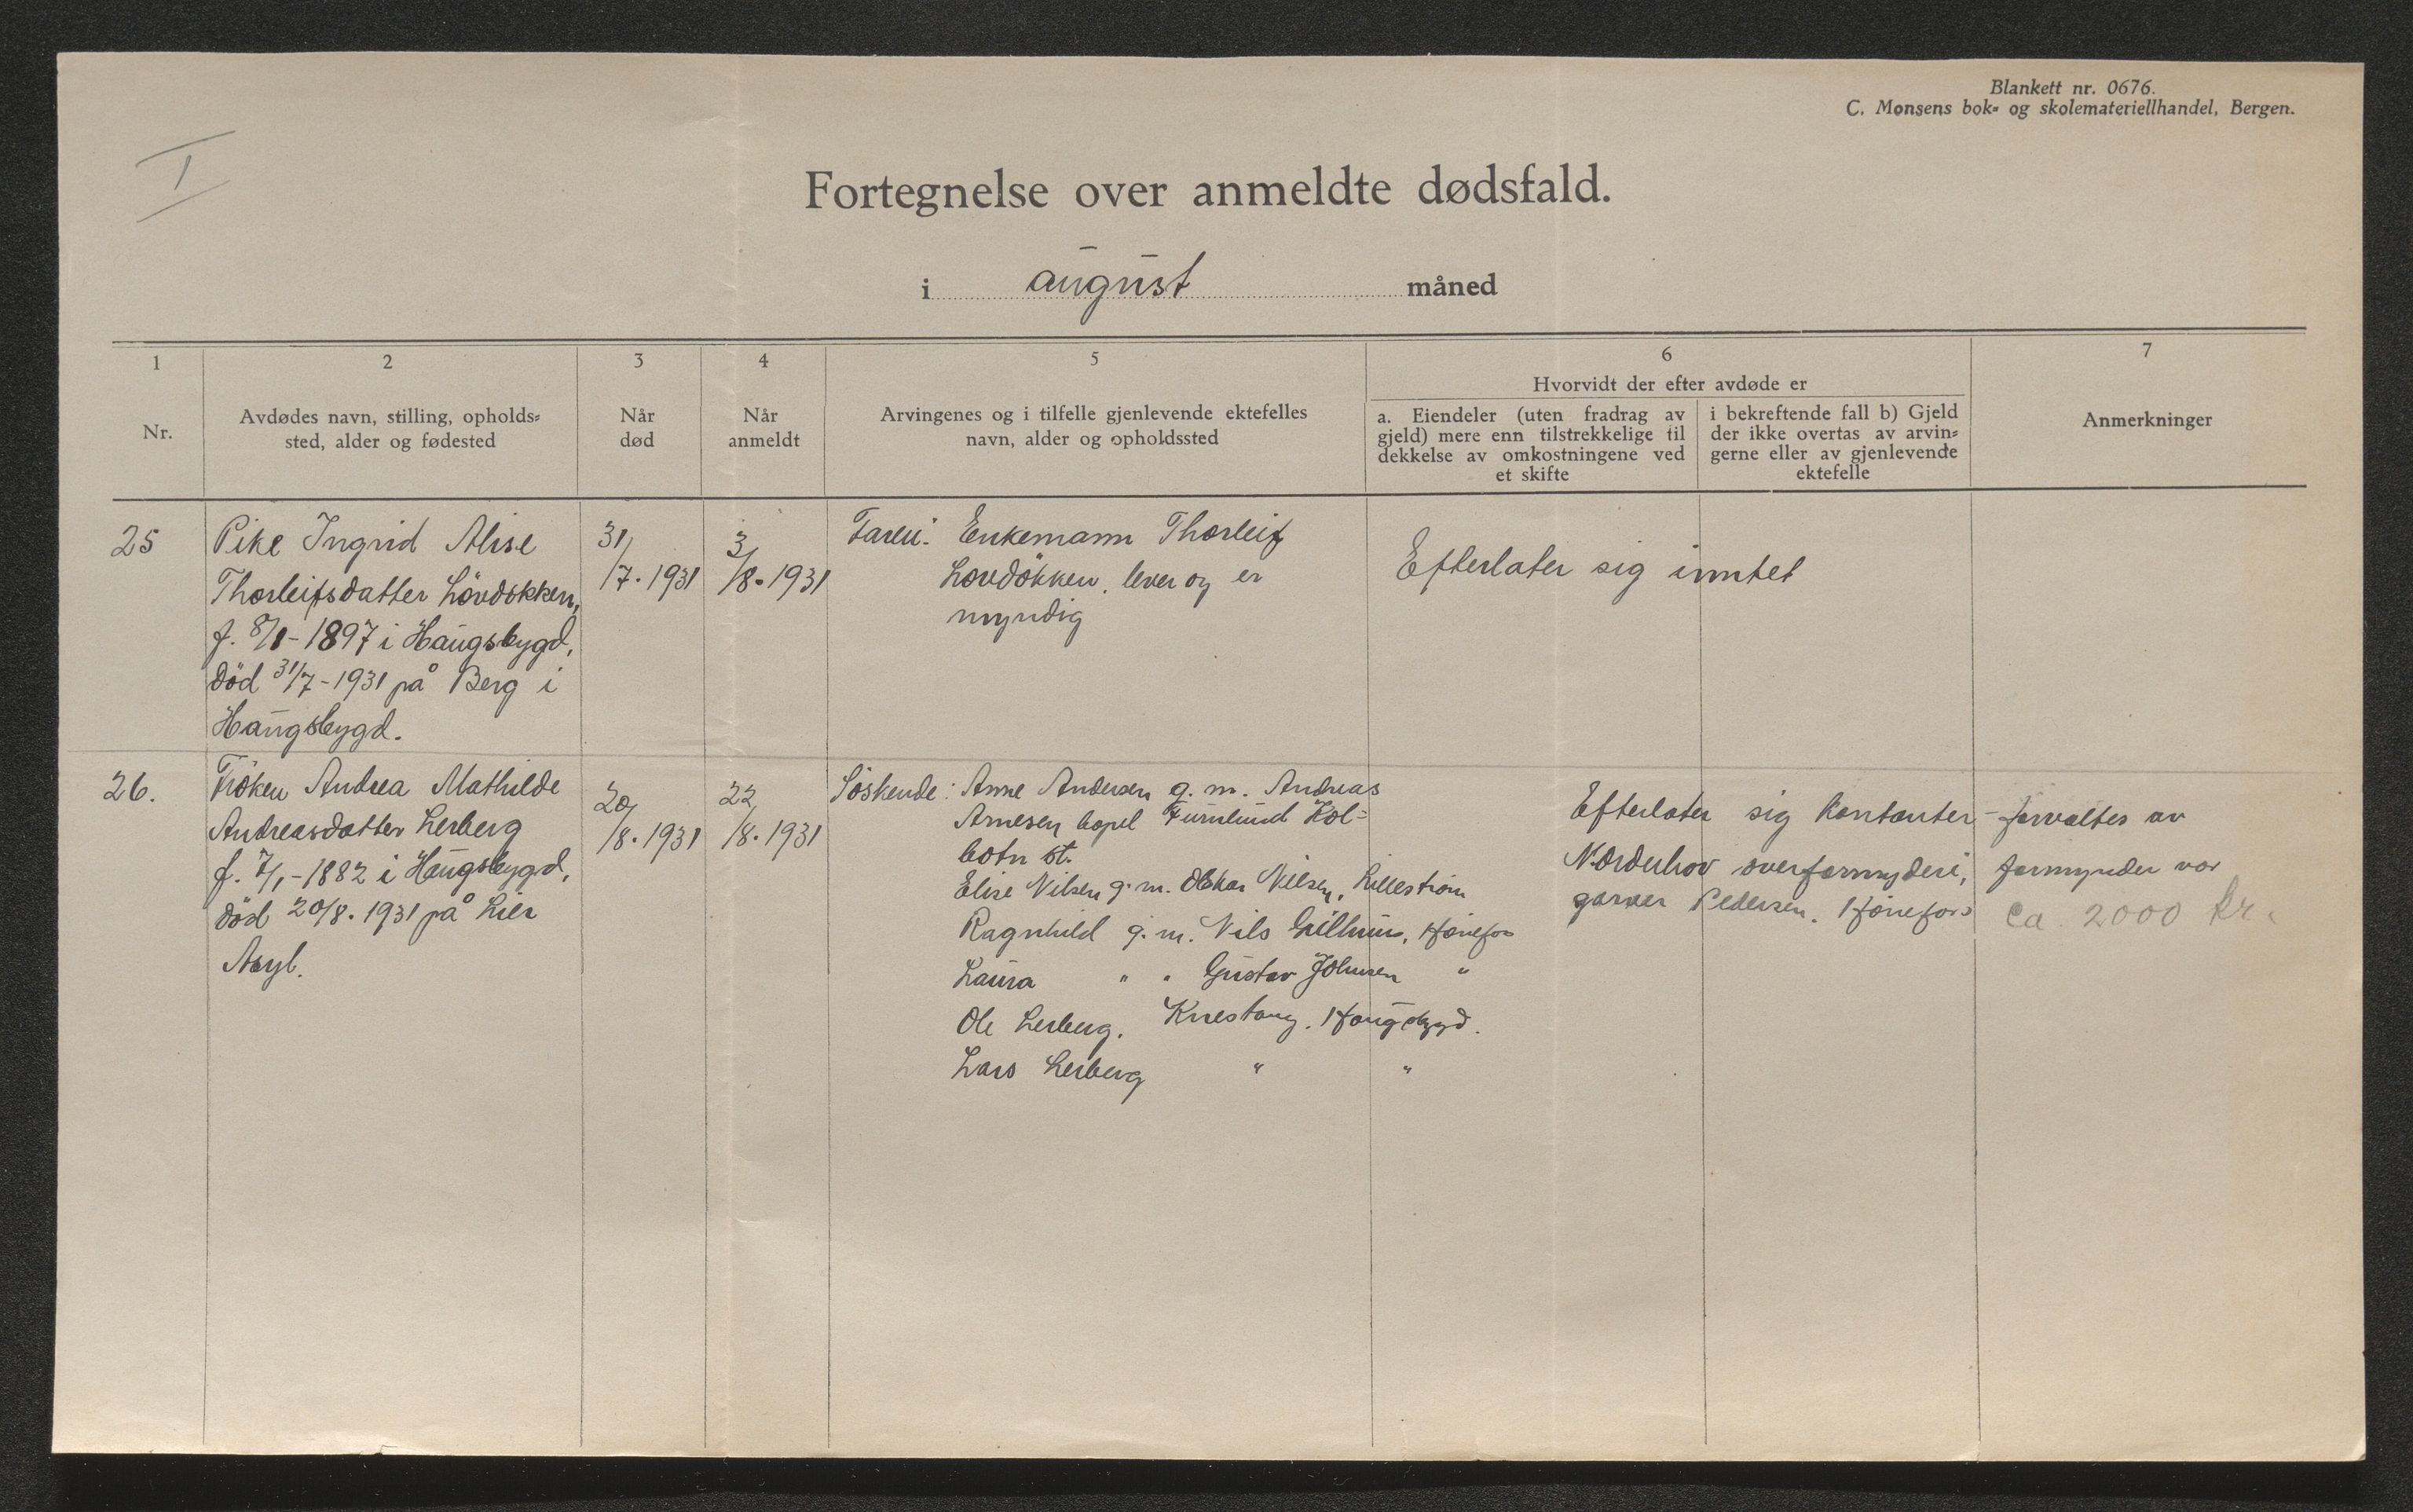 Blankett nr. 0676.
C. Monsens bok- og skolemateriellhandel, Bergen.
I
Fortegnelse over anmeldte dødsfald.
i august måned
1
2
3
4
5
6
7
Nr.
Avdødes navn, stilling, opholds-
sted, alder og fødested
Når
død
Når
anmeldt
Arvingenes og i tilfelle gjenlevende ektefelles
navn, alder og opholdssted
Hvorvidt der efter avdøde er
a. Eiendeler (uten fradrag av
gjeld) mere enn tilstrekkelige til
dekkelse av omkostningene ved
et skifte
i bekreftende fall b) Gjeld
der ikke overtas av arvin-
gerne eller av gjenlevende
ektefelle
Anmerkninger
25
Pike Ingrid Alise
Thorleifsdatter Lövdokken,
f. 8/1-1897 i Haugsbygd,
död 31/7-1931 på Berg i
Haugsbygd.
31/7. 1931
3/8. 1931
Enkemann Thorleif
Lövdökken, lever og er
myndig
Efterlater sig inntet
26.
Fröken Andrea Mathilde
Andreasdatter Lerberg
f. 7/1-1882 i Haugsbygd,
död 20/8. 1931 på Lier
Asyl.
20/8. 1931
22/8. 1931
Söskende: Anne Andersen g. m. Andreas
Arnesen bopel Furulund Kol-
botn st.
Elise Nilsen g. m. Oskar Nilsen, Lillestrøm
Ragnhild g. m. Nils Gillhuus, Hönefos
Laura " " Gustav Johnsen "
Ole Lerberg, Knestang, Haugsbygd.
Lars Lerberg " "
Efterlater sig kontanter - forvaltes av
Norderhov overformynderi, formynder var
garver Pedersen, Hönefoss
ca 2000 kr.